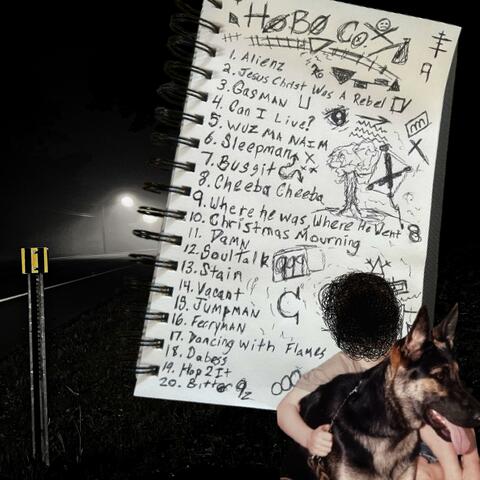 HOBO Co.
1. Alienz
2. Jesus Christ Was A Rebel
3. GasMAN
4. Can I Live?
5. WUZ MA NAIM
6. Sleepman
7. Buggit
8. Cheeba Cheeba
9. Where he was, Where He Went
10. Christmas Mourning
11. Damn
12. Soul Talk
13. Stain
14. Vacant
15. JUMPMAN
16. Ferryman
17. Dancing With Flames
18. Dabess
19. Hop 2 It
20. Bitter